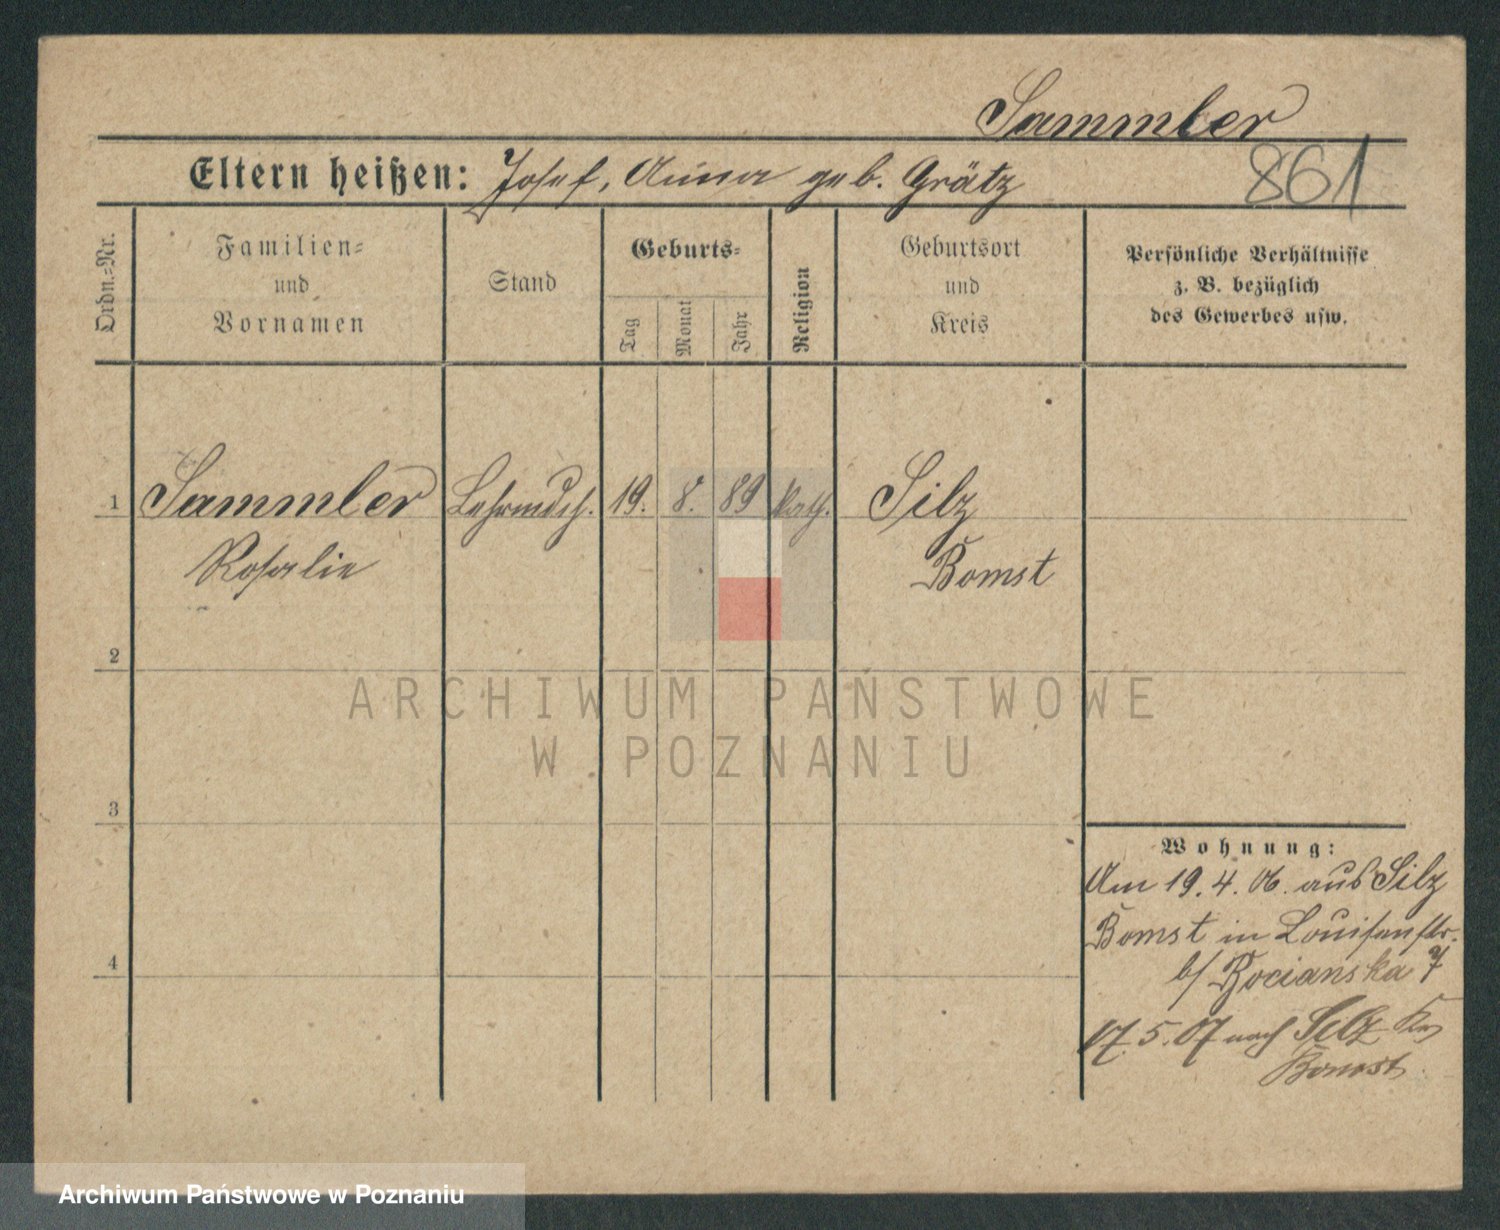 Sammler
861
Eltern heißen: Josef, Anna geb. Grätz
Ordn.-Nr.
Familien-
und
Vornamen
Stand
Geburts-
Tag
Monat
Jahr
Religion
Geburtsort
und
Kreis
Persönliche Verhältnisse
z. B. bezüglich
des Gewerbes usw.
1 Sammler Lehrmdch. 19. 8. 89 kath. Silz
Rosalie Bomst
2
3
4
Wohnung:
Am 19. 4. 06. aus Silz
Bomst in Louisenstr.
b/ Rocianska 7
17. 5. 07 nach Silz Kr
Bomst
ARCHIWUM PAŃSTWOWE
W POZNANIU
Archiwum Państwowe w Poznaniu